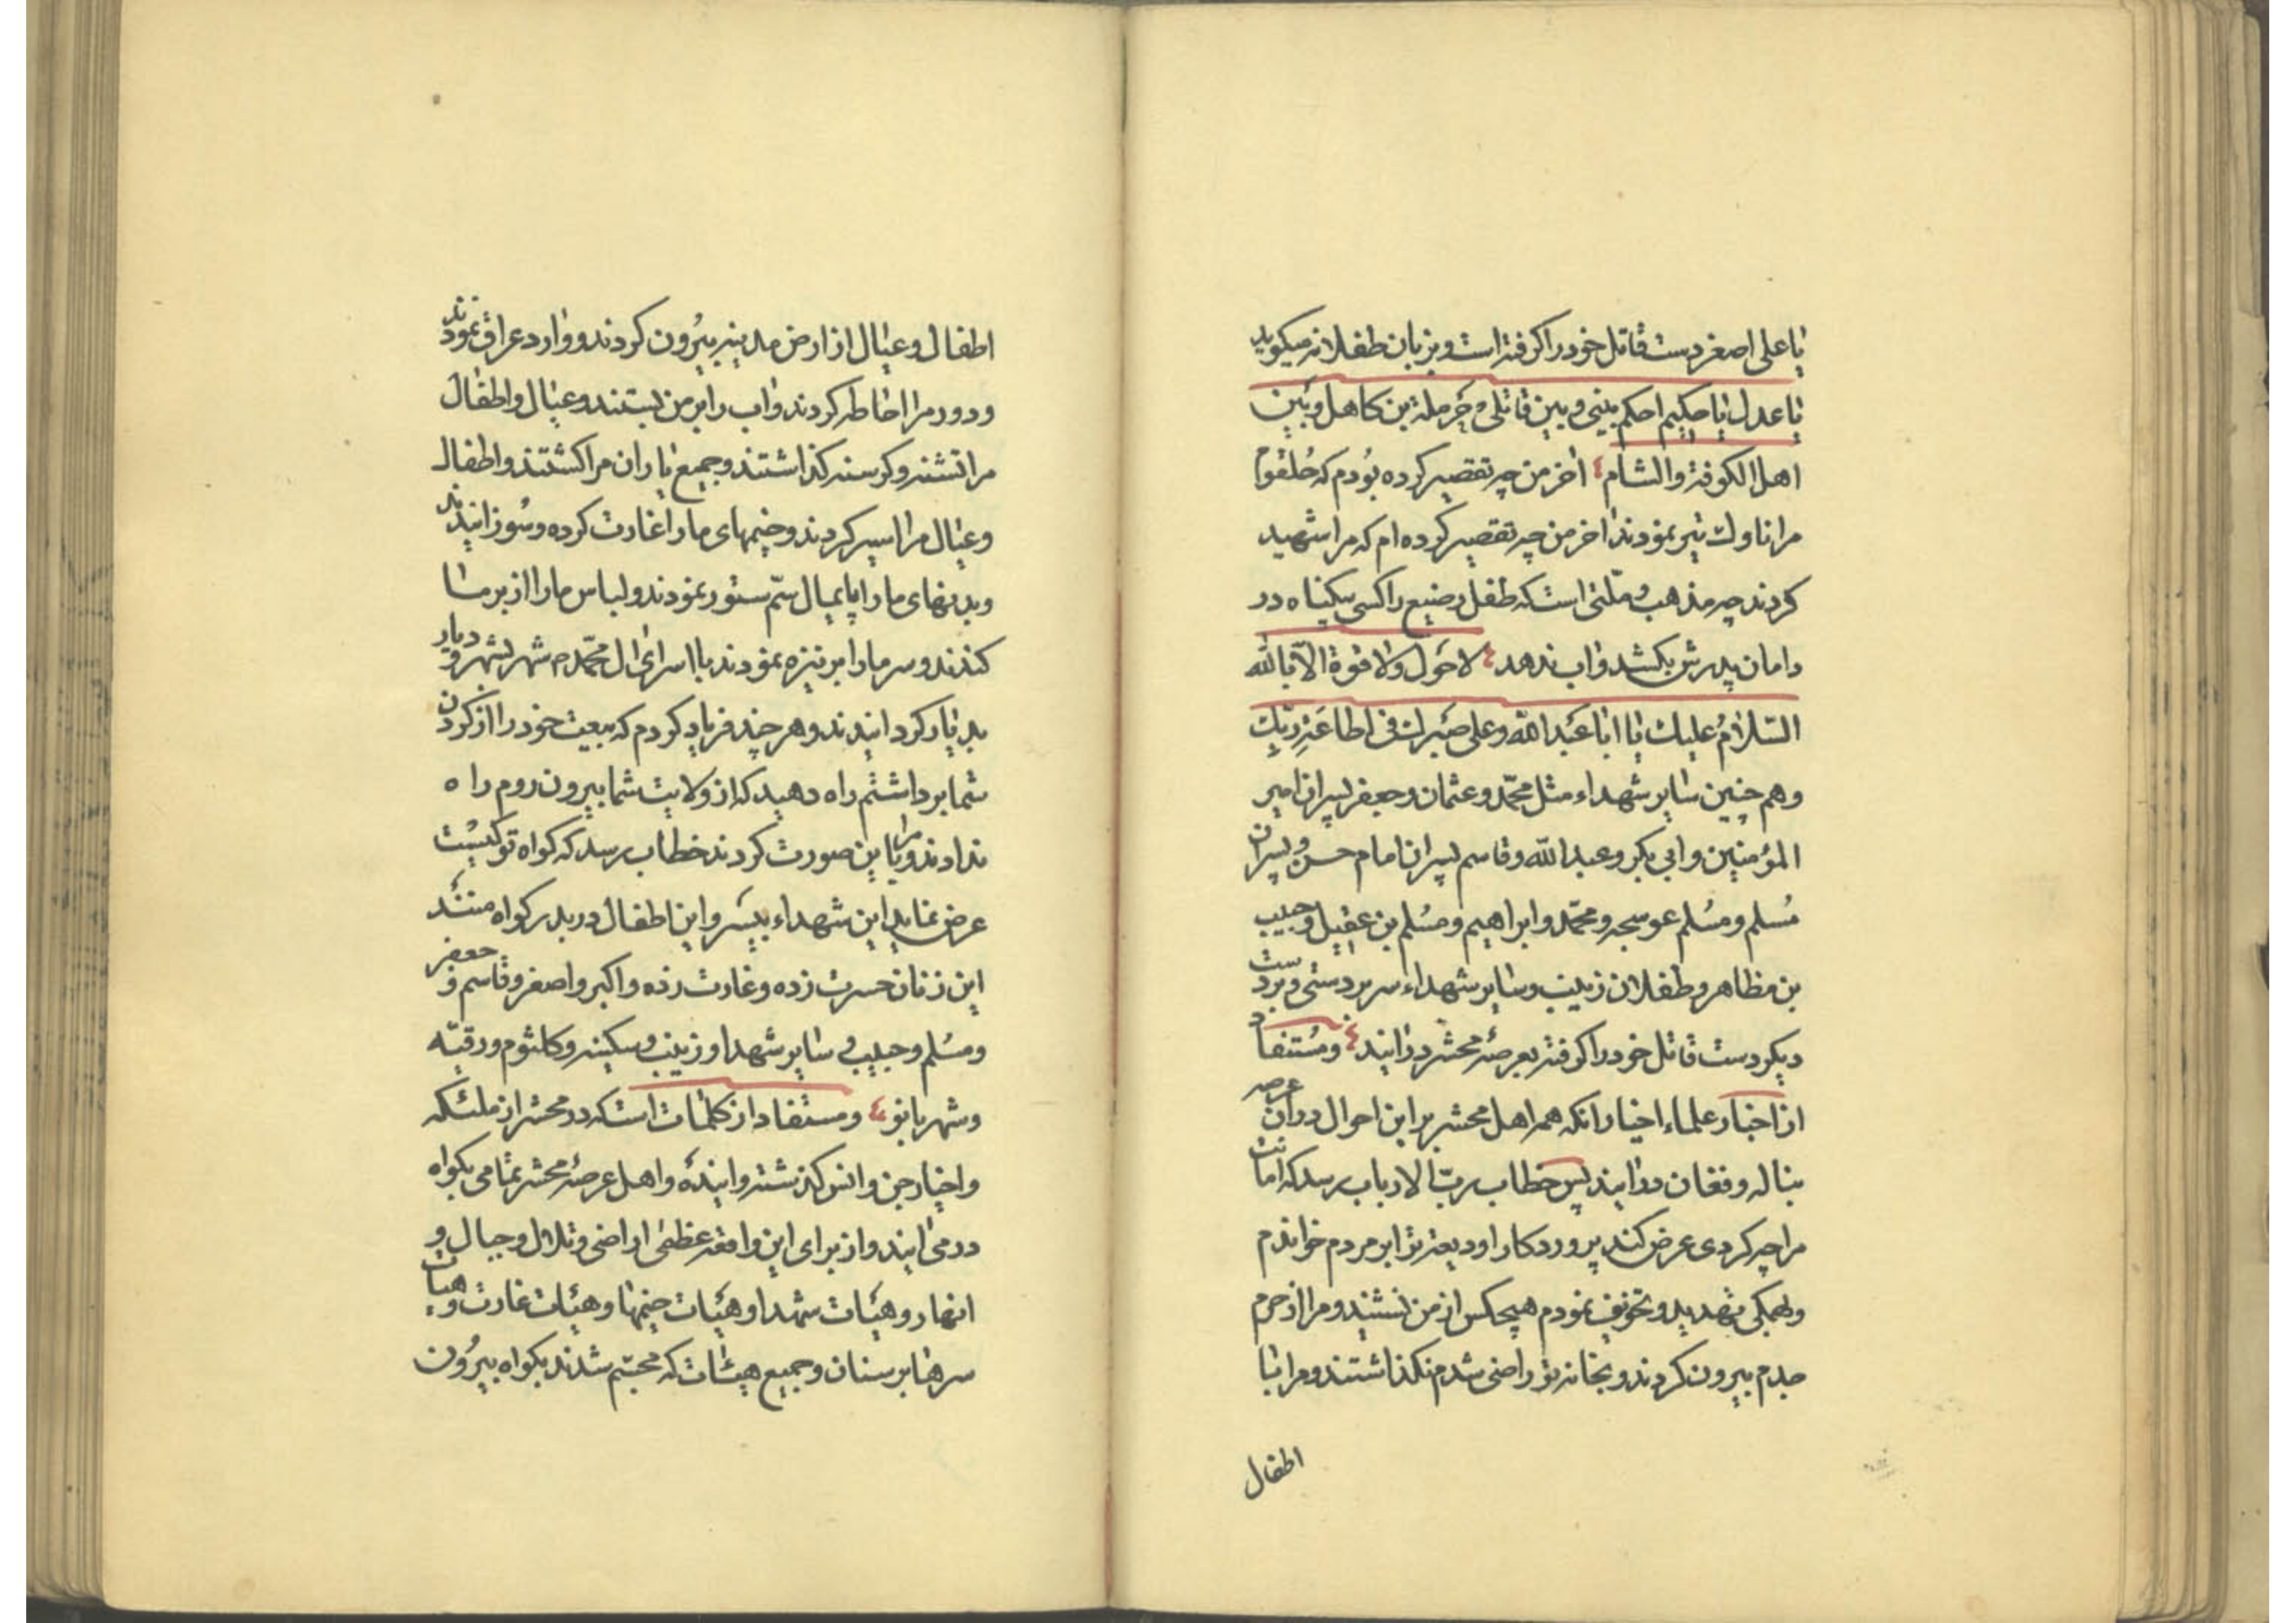 یا علی اصغر دست قاتل خود را کرفته است و بزبان طفلانه میکوید
یا عدل یا حکیم احکم بینی و بین قاتلی و حرملة بن کاهل و بین
اهل الکوفة والشام اخر من چه تقصیر کرده بودم که حلقوم
مرا ناوک تیر نمودند اخر من چه تقصیر کرده ام که مرا شهید
کردند چه مذهب و ملتی است که طفل رضیع را کسی بیکناه در
دامان پدرش بکشد و اب ندهد لا حول ولا قوة الا بالله
السلام علیک یا ابا عبد الله وعلی صبرک فی اطاعة ربک
وهم چنین سایر شهداء مثل محمد و عثمان و جعفر پسران امیر
المؤمنین و ابی بکر و عبد الله و قاسم پسران امام حسن و پسران
مسلم و مسلم عوسجه و محمد و ابراهیم و مسلم بن عقیل و حبیب
بن مظاهر و طفلان زینب و سایر شهداء سر بر دستی و بر دست
دیکر دست قاتل خود را کرفته بعرصهٔ محشر درایند و مستفاد
از اخبار علماء اخیار انکه همه اهل محشر بر این احوال در ان عرصه
بناله و فغان درایند پس خطاب رب الارباب رسد که امانت
مرا چه کردی عرض کند پروردکارا ودیعهٔ ترا بر مردم خواندم
و لهمکی تهدید و تخویف نمودم هیچکس از من نشنید و مرا از حرم
جدم بیرون کردند و بخانه تو راضی شدم نکذاشتند و مرا با
اطفال
اطفال و عیال از ارض مدینه بیرون کردند و وارد عراق نمودند
و دور مرا احاطه کردند و اب را بر من بستند و عیال و اطفال
مرا تشنه و کرسنه کذاشتند و جمیع یاران مرا کشتند و اطفال
و عیال مرا اسیر کردند و خیمهای ما را غارت کرده و سوزانیدند
و بدنهای ما را پایمال سم ستور نمودند و لباس ما را از بر ما
کندند و سر ما را بر نیزه نمودند با اسرای ال محمد م شهر بشهر و دیار
بدیار کردانیدند و هر چند فریاد کردم که بیعت خود را از کردن
شما برداشتم راه دهید که از ولایت شما بیرون روم راه
ندادند و مرا باین صورت کردند خطاب رسد که کواه تو کیست
عرض نماید این شهداء بیسر و این اطفال دربدر کواه منند
این زنان حسرت زده و غارت زده و اکبر و اصغر و قاسم و جعفر
و مسلم و حبیب و سایر شهدا و زینب و سکینه و کلثوم و رقیه
و شهربانو و مستفاد از کلمات است که در محشر از ملئکه
و اخیار جن و انس کذشته و اینده و اهل عرصهٔ محشر تمامی بکواه
در می ایند و از برای این واقعهٔ عظمی اراضی و تلال و جبال و
انهار و هیئات شهدا و هیئات خیمها و هیئات غارت و هیئات
سرها بر سنان و جمیع هیئات که مجسم شدند بکواه بیرون